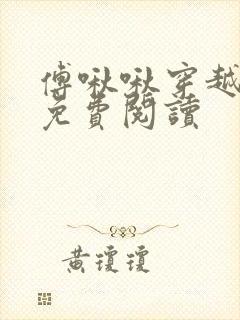 傅啾啾穿越
免費閱讀
黃瓊瓊